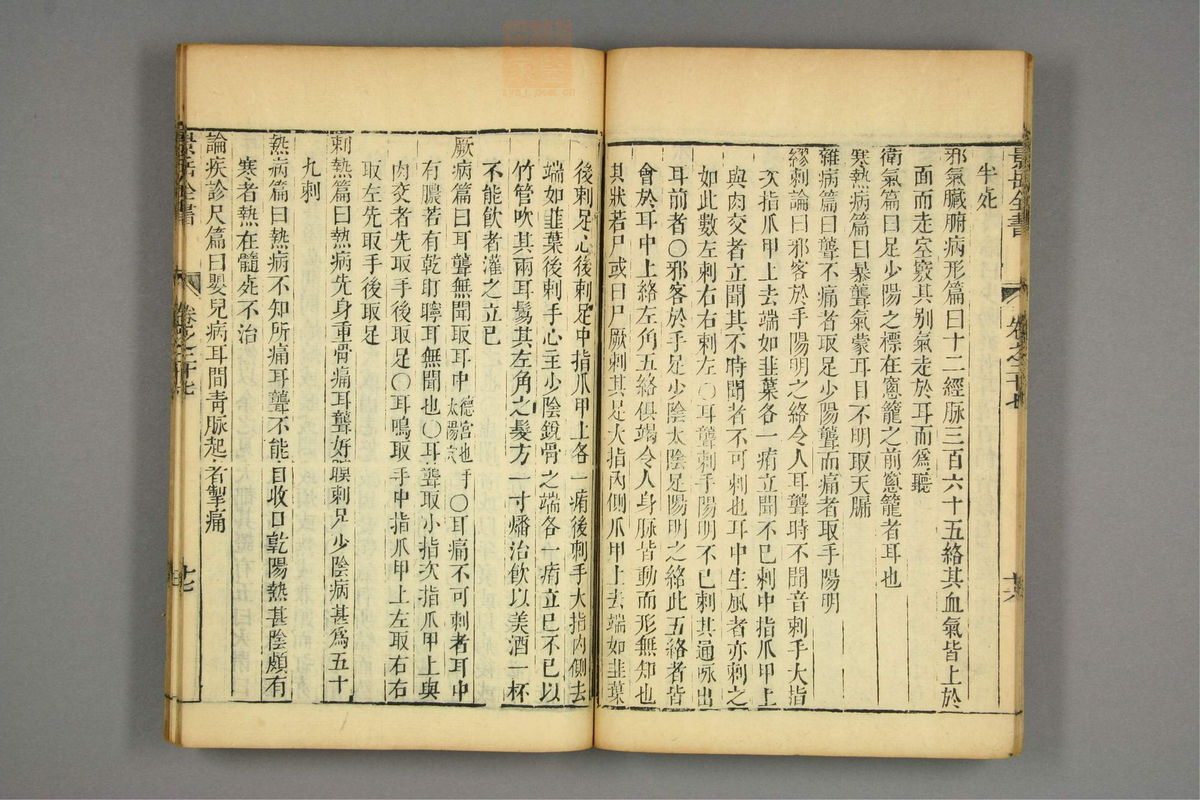 景岳全書 卷之二十七
半死
邪氣臟腑病形篇曰十二經脉三百六十五絡其血氣皆上於
面而走空竅其别氣走於耳而爲聽
衛氣篇曰足少陽之標在窻籠之前窻籠者耳也
寒熱病篇曰暴聾氣蒙耳目不明取天牖
雜病篇曰聾不痛者取足少陽聾而痛者取手陽明
繆刺論曰邪客於手陽明之絡令人耳聾時不聞音刺手大指
次指爪甲上去端如韭葉各一痏立聞不已刺中指爪甲上
與肉交者立聞其不時聞者不可刺也耳中生風者亦刺之
如此數左刺右右刺左○耳聾刺手陽明不已刺其通脉出
耳前者○邪客於手足少陰太陰足陽明之絡此五絡者皆
會於耳中上絡左角五絡俱竭令人身脉皆動而形無知也
其狀若尸或曰尸厥刺其足大指內側爪甲上去端如韭葉
後刺足心後刺足中指爪甲上各一痏後刺手大指内側去
端如韭葉後刺手心主少陰銳骨之端各一痏立已不已以
竹管吹其兩耳鬄其左角之髮方一寸燔治飲以美酒一杯
不能飲者灌之立已
厥病篇曰耳聾無聞取耳中 德宮也太陽穴 ○耳痛不可刺者耳中
有膿若有乾盯聹耳無聞也○耳聾取小指次指爪甲上與
肉交者先取手後取足○耳鳴取手中指爪甲上左取右右
取左先取手後取足
刺熱篇曰熱病先身重骨痛耳聾好瞑刺足少陰病甚爲五十
九刺
熱病篇曰熱病不知所痛耳聾不能自收口乾陽熱甚陰頗有
寒者熱在髓死不治
論疾診尺篇曰嬰兒病耳間青脉起者掣痛
景岳全書 卷之二十七 廿七